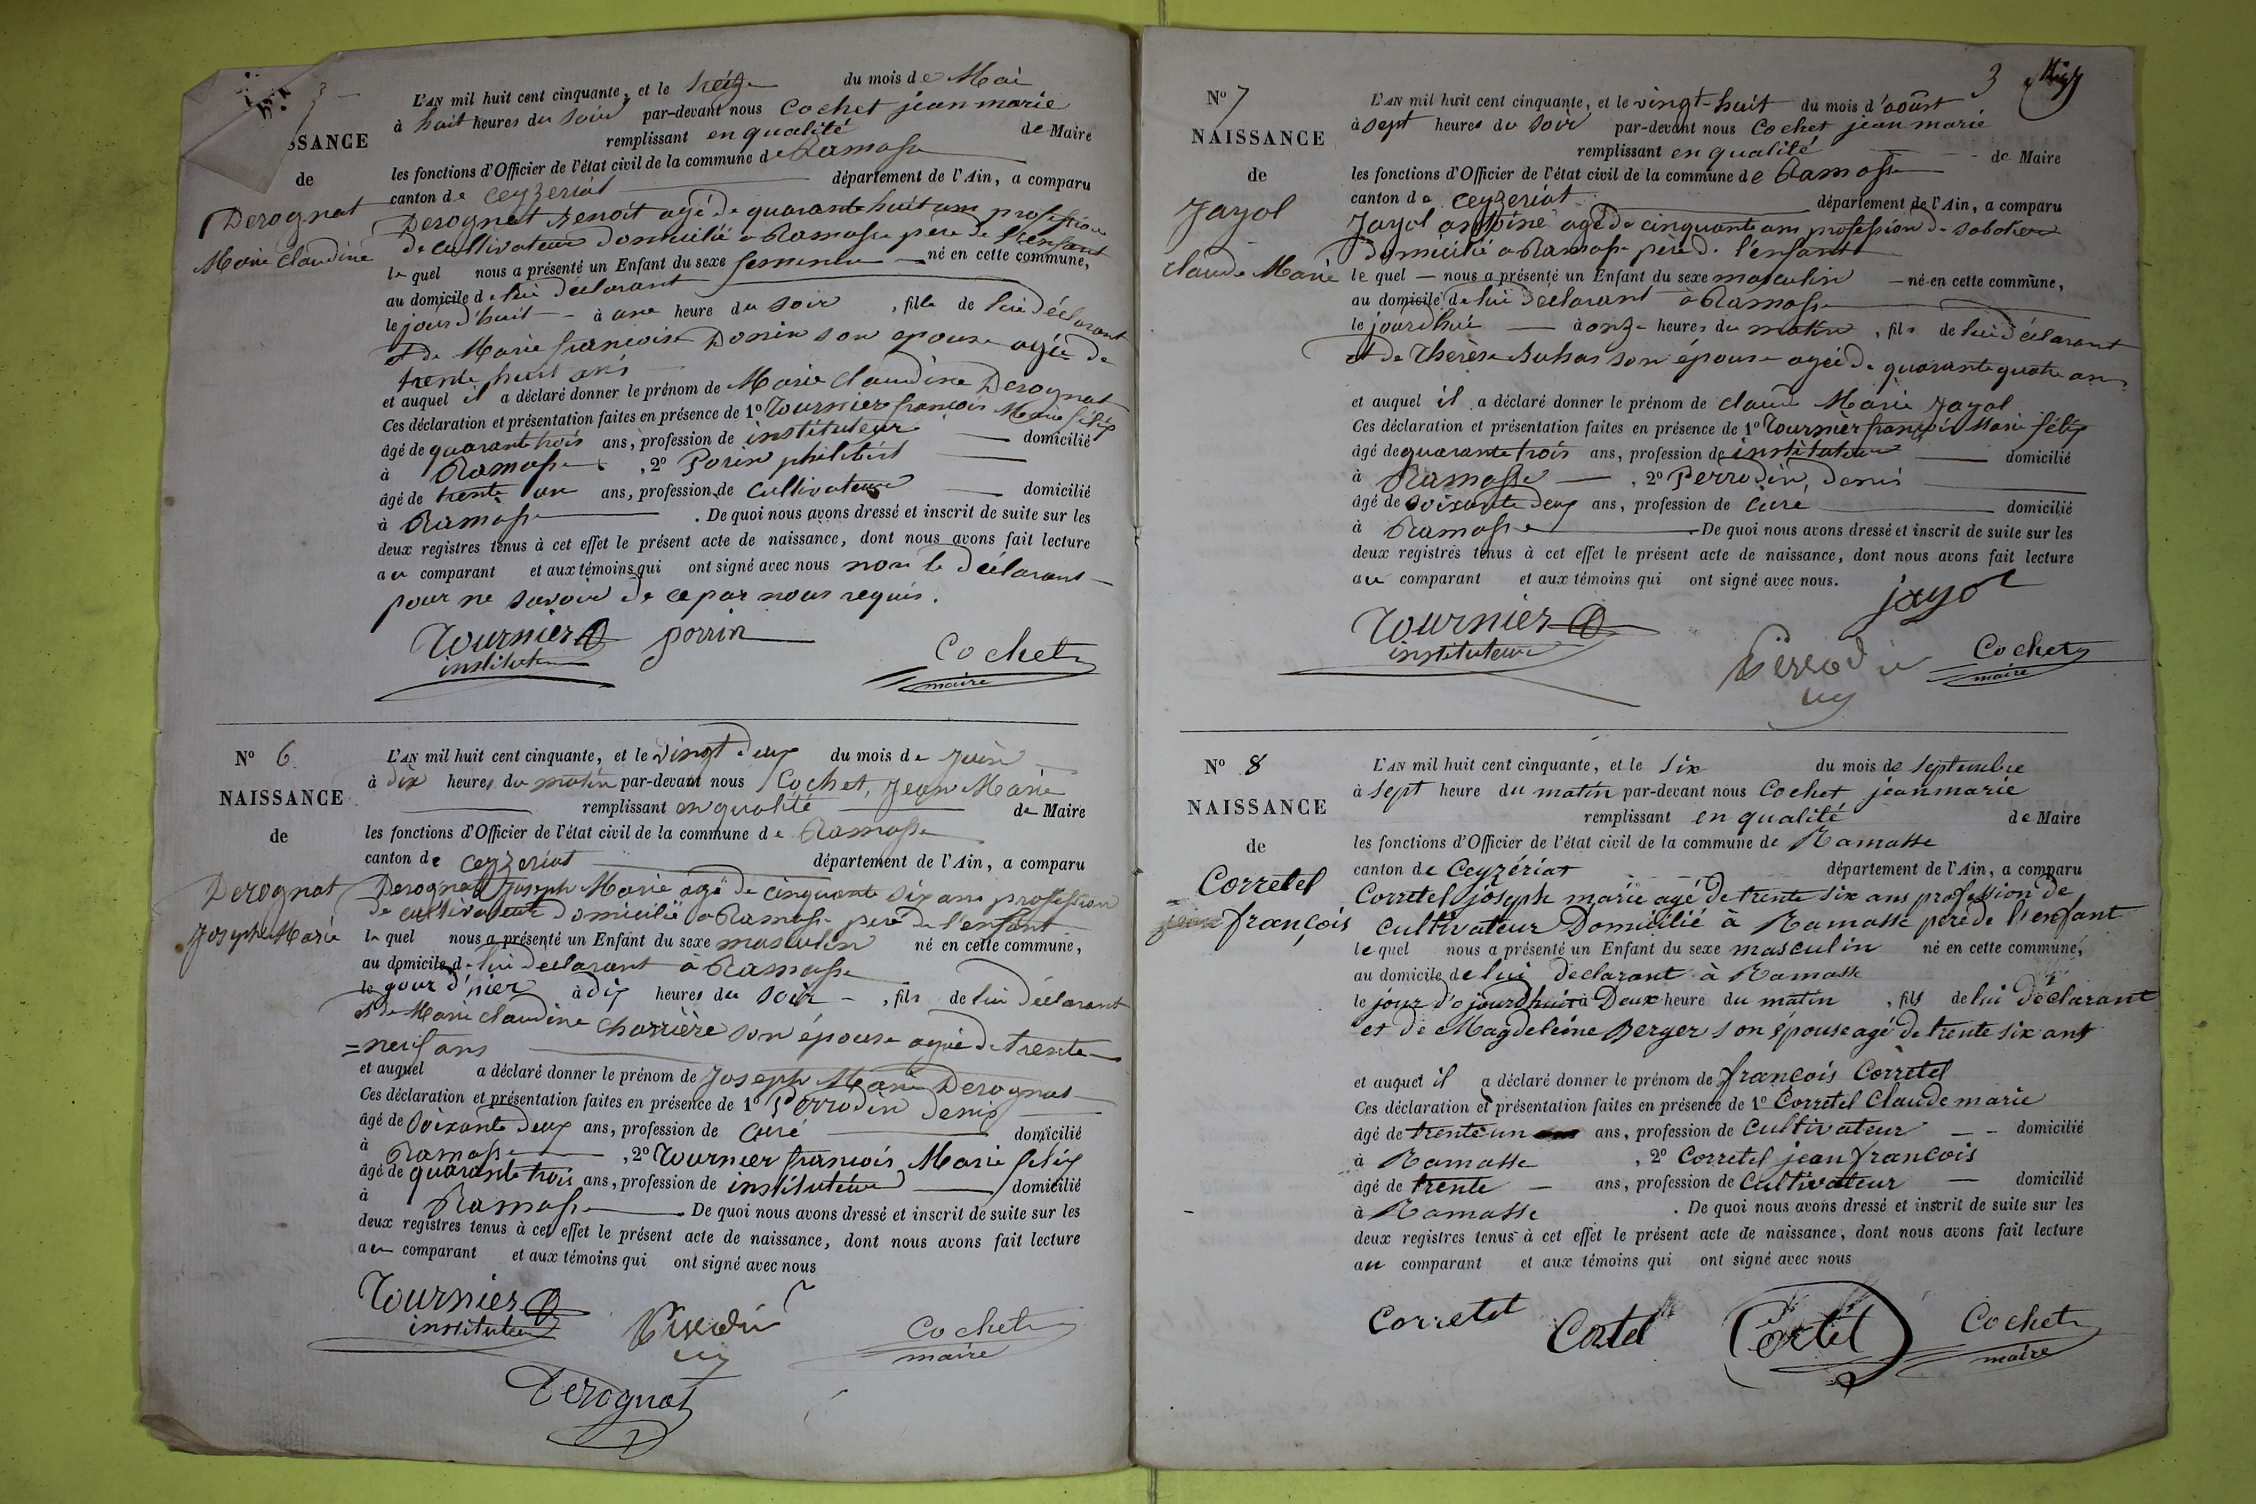 SSANCE
de
Derognat
Marie Claudine
L'AN mil huit cent cinquante, et le treize du mois de Mai
à huit heures du soir par-devant nous Cochet jean marie
remplissant en qualité de Maire
les fonctions d'Officier de l'état civil de la commune de Ramasse
canton de Ceyzeriat département de l'Ain, a comparu
Derognat Benoit agé de quarante huit ans profession
de cultivateur domicilié a Ramasse pere de l'enfant
le quel nous a présenté un Enfant du sexe feminin né en cette commune,
au domicile de lui declarant
le jour d'huit à une heure du soir, fille de lui déclarant
et de Marie françoise Donin son epouse agée de
trente huit ans
et auquel il a déclaré donner le prénom de Marie Claudine Derognat
Ces déclaration et présentation faites en présence de 1º Tournier françois Marie félix
âgé de quarante trois ans, profession de instituteur domicilié
à Ramasse, 2º Porin philibert
âgé de trente un ans, profession de Cultivateur domicilié
à Ramasse. De quoi nous avons dressé et inscrit de suite sur les
deux registres tenus à cet effet le présent acte de naissance, dont nous avons fait lecture
au comparant et aux témoins qui ont signé avec nous non le déclarant
pour ne savoir de ce par nous requis.
Tournier porrin
instituteur
Cochet
maire
Nº 6
NAISSANCE
de
Derognat
Joseph Marie
L'AN mil huit cent cinquante, et le vingt deux du mois de Juin
à dix heures du matin par-devant nous Cochet, Jean Marie
remplissant en qualité de Maire
les fonctions d'Officier de l'état civil de la commune de Ramasse
canton de Ceyzeriat département de l'Ain, a comparu
Derognat Joseph Marie agé de cinquante six ans profession
de cultivateur domicilié a Ramasse pere de l'enfant
le quel nous a présenté un Enfant du sexe masculin né en cette commune,
au domicile de lui declarant à Ramasse
le jour d'hier à dix heures du soir, fils de lui déclarant
et de Marie claudine Charrière son épouse agée de trente
=neuf ans
et auquel a déclaré donner le prénom de Joseph Marie Derognat
Ces déclaration et présentation faites en présence de 1º Perrodin Denis
âgé de soixante deux ans, profession de Curé domicilié
à Ramasse, 2º Tournier françois Marie félix
âgé de quarante trois ans, profession de instituteur domicilié
à Ramasse. De quoi nous avons dressé et inscrit de suite sur les
deux registres tenus à cet effet le présent acte de naissance, dont nous avons fait lecture
au comparant et aux témoins qui ont signé avec nous
Tournier
instituteur
Perrodin
Cochet
maire
Derognat
3
Nº 7
NAISSANCE
de
Jayol
Claude Marie
L'AN mil huit cent cinquante, et le vingt-huit du mois d'août
à sept heures du soir par-devant nous Cochet jean marie
remplissant en qualité de Maire
les fonctions d'Officier de l'état civil de la commune de Ramasse
canton de Ceyzeriat département de l'Ain, a comparu
Jayol antoine agé de cinquante ans profession de sabotier
domicilié a Ramasse père de l'enfant
le quel nous a présenté un Enfant du sexe masculin né en cette commune,
au domicile de lui déclarant à Ramasse
le jourdhui à onze heures du matin, fils de lui déclarant
et de Therèse Buhas son épouse agée de quarante quatre ans
et auquel il a déclaré donner le prénom de claude Marie Jayol
Ces déclaration et présentation faites en présence de 1º Tournier françois Marie félix
âgé de quarante trois ans, profession de instituteur domicilié
à Ramasse, 2º Perrodin, Denis
âgé de soixante deux ans, profession de Curé domicilié
à Ramasse. De quoi nous avons dressé et inscrit de suite sur les
deux registres tenus à cet effet le présent acte de naissance, dont nous avons fait lecture
au comparant et aux témoins qui ont signé avec nous.
jayol
Tournier
instituteur
Perrodin
Cochet
maire
Nº 8
NAISSANCE
de
Corretel
françois
L'AN mil huit cent cinquante, et le six du mois de septembre
à sept heure du matin par-devant nous Cochet jean marie
remplissant en qualité de Maire
les fonctions d'Officier de l'état civil de la commune de Ramasse
canton de Ceyzériat département de l'Ain, a comparu
Corretel joseph marie agé de trente six ans profession de
cultivateur Domicilié à Ramasse pere de l'enfant
le quel nous a présenté un Enfant du sexe masculin né en cette commune,
au domicile de lui declarant à Ramasse
le jour d'ojourdhuit à Deux heure du matin, fils de lui Déclarant
et de Magdeleine Berger son épouse agé de trente six ans
et auquel il a déclaré donner le prénom de françois Corretel
Ces déclaration et présentation faites en présence de 1º Corretel Claude marie
âgé de trente un ans, profession de Cultivateur domicilié
à Ramasse, 2º Corretel jean francois
âgé de trente ans, profession de Cultivateur domicilié
à Ramasse. De quoi nous avons dressé et inscrit de suite sur les
deux registres tenus à cet effet le présent acte de naissance, dont nous avons fait lecture
au comparant et aux témoins qui ont signé avec nous
Corretel Cortel Cortel Cochet
maire